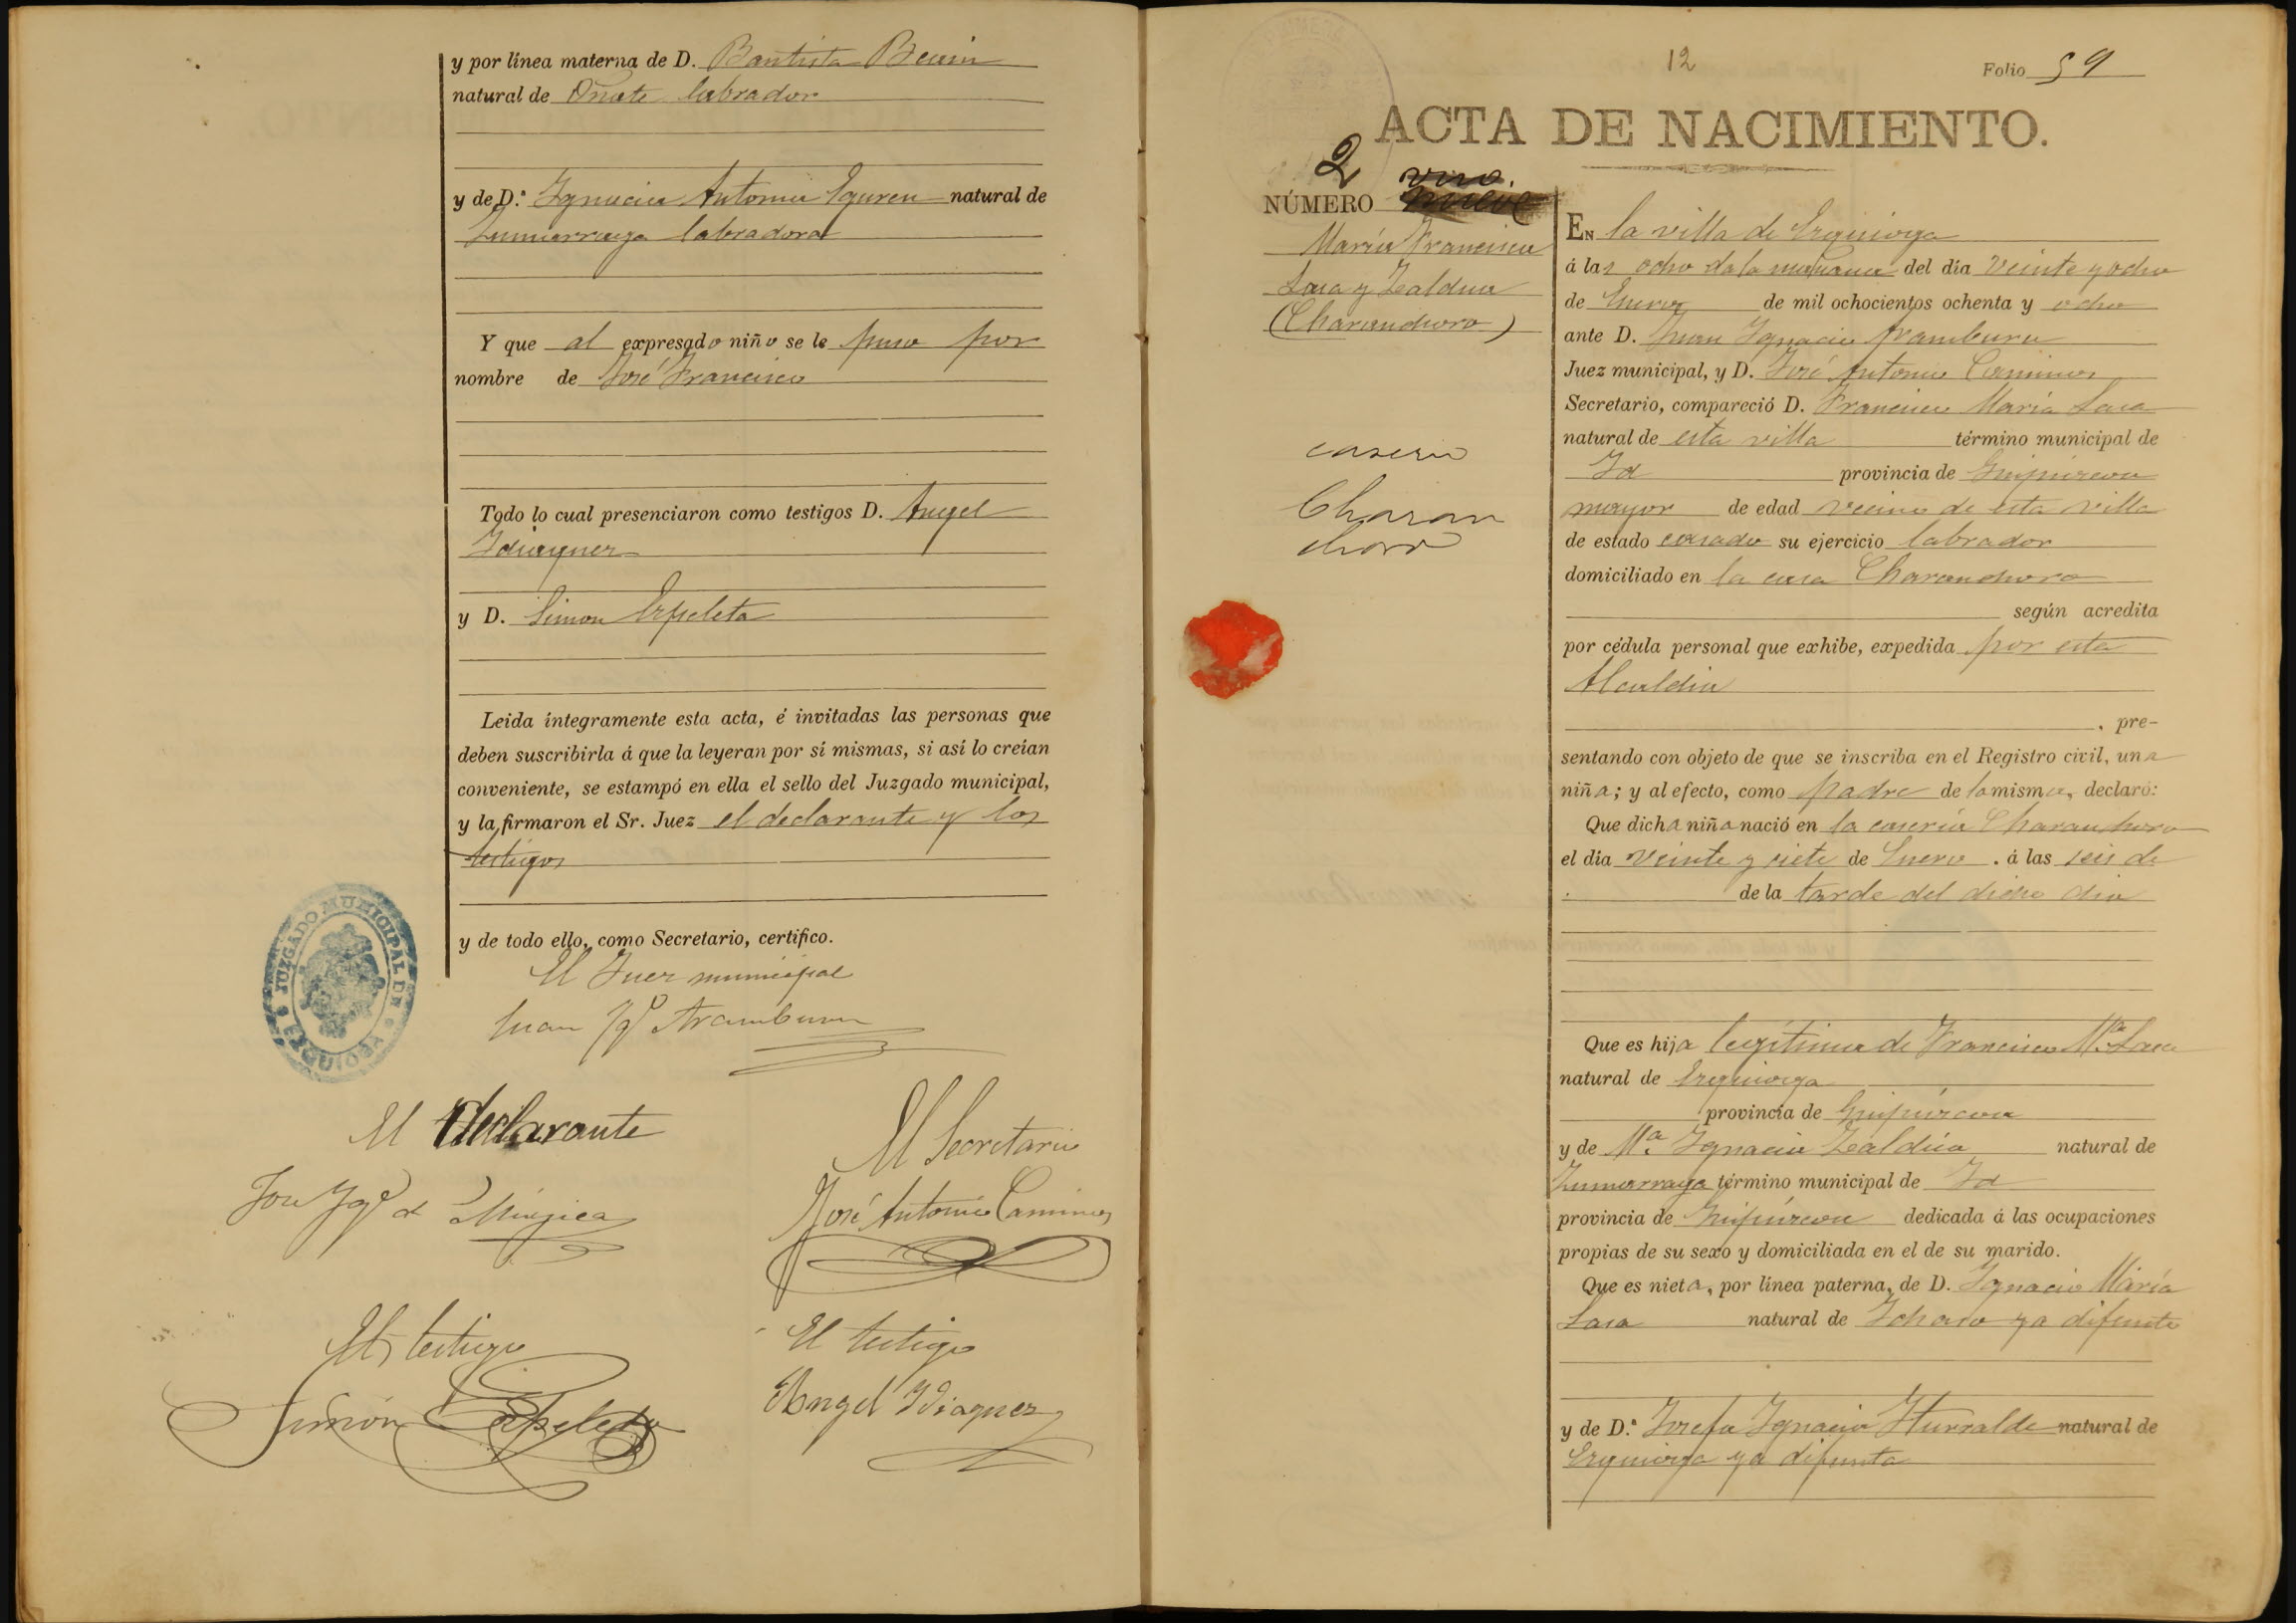 y por línea materna de D. Bautista
natural de Oñate labrador
y de D.ª Ignacia Antonia Eguren natural de
Zumarraga labradora
Y que al expresado niño se le puso por
nombre de José Francisco
Todo lo cual presenciaron como testigos D. Angel
Idiaquez
y D. Simon Ezpeleta
Leida íntegramente esta acta, é invitadas las personas que
deben suscribirla á que la leyeran por sí mismas, si así lo creían
conveniente, se estampó en ella el sello del Juzgado municipal,
y la firmaron el Sr. Juez el declarante y los
testigos
y de todo ello, como Secretario, certifico.
JUZGADO MUNICIPAL DE EZQUIOGA
El Juez municipal
Juan Ygº Aramburu
El declarante
José Ygº de Múgica
El Secretario
José Antonio Caminos
El testigo
Simón Ezpeleta
El testigo
Angel Idiaquez
12
Folio 59
ACTA DE NACIMIENTO.
2
NÚMERO
María Francisca
Lasa y Zaldua
(Charandoro)
caserio
Charan
doro
EN la villa de Ezquioga
á las ocho de la mañana del día veinte y ocho
de Enero de mil ochocientos ochenta y ocho
ante D. Juan Ignacio Aramburu
Juez municipal, y D. José Antonio Caminos
Secretario, compareció D. Francisco María Lasa
natural de esta villa término municipal de
Id provincia de Guipúzcoa
mayor de edad vecino de esta villa
de estado casado su ejercicio labrador
domiciliado en la casa Charandoro
según acredita
por cédula personal que exhibe, expedida por esta
Alcaldia
, pre-
sentando con objeto de que se inscriba en el Registro civil, una
niña; y al efecto, como padre de la misma, declaró:
Que dicha niña nació en la casería Charandoro
el día veinte y siete de Enero á las seis de
de la tarde del dicho dia
Que es hija legítima de Francisco Mª Lasa
natural de Ezquioga
provincia de Guipúzcoa
y de Mª Ignacia Zaldúa natural de
Zumarraga término municipal de Id
provincia de Guipúzcoa dedicada á las ocupaciones
propias de su sexo y domiciliada en el de su marido.
Que es nieta, por línea paterna, de D. Ignacio María
Lasa natural de Ichaso ya difunto
y de D.ª Josefa Ignacia Iturralde natural de
Ezquioga ya difunta